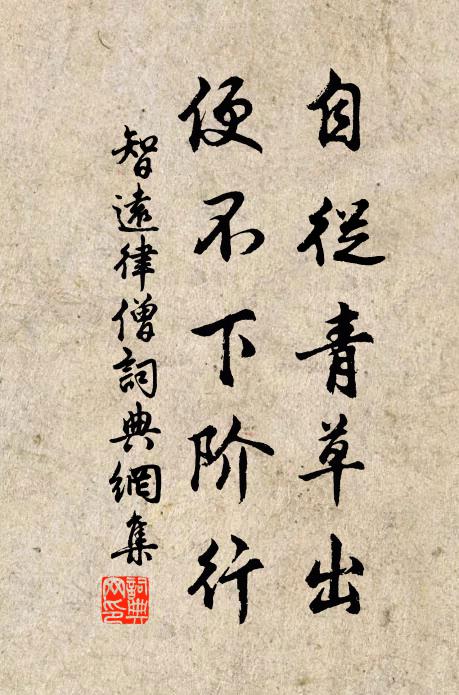 自從青草出
便不下阶行
智遠律僧詞典網集
詞典网印